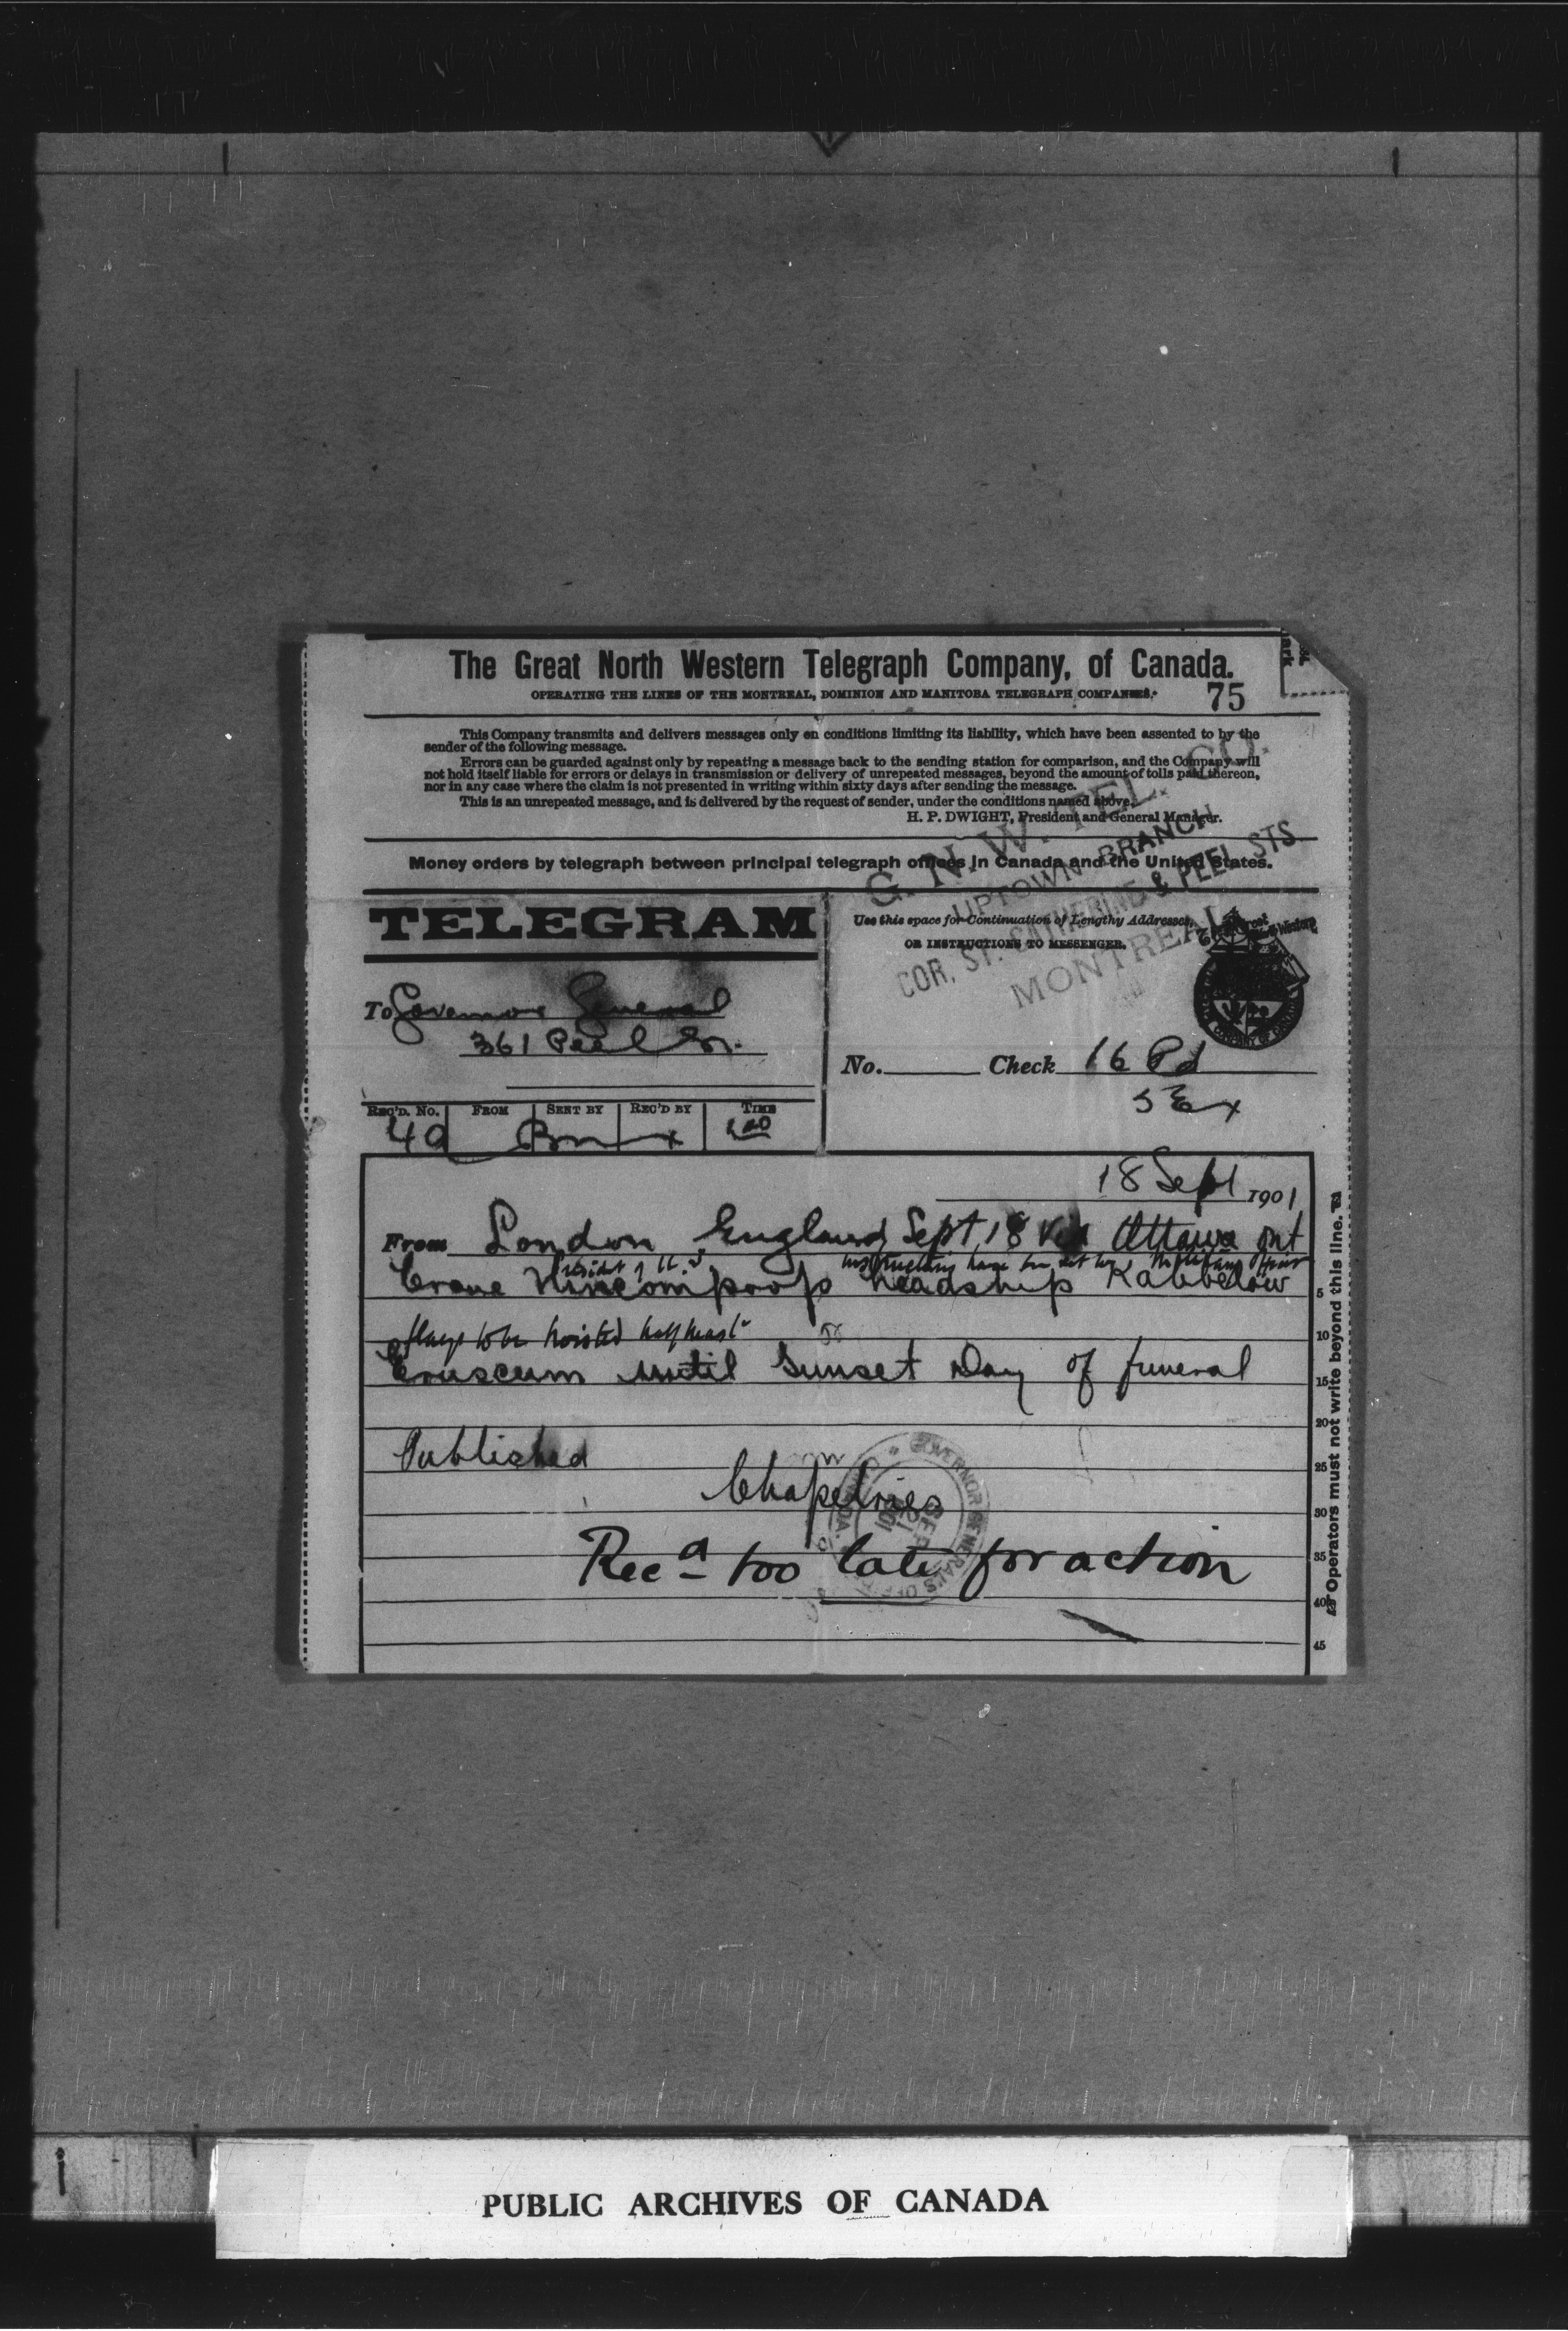 The Great North Western Telegraph Company, of Canada.
OPERATING THE LINES OF THE MONTREAL, DOMINION AND MANITOBA TELEGRAPH COMPANIES.
75
This Company transmits and delivers messages only on conditions limiting its liability, which have been assented to by the
sender of the following message.
Errors can be guarded against only by repeating a message back to the sending station for comparison, and the Company will
not hold itself liable for errors or delays in transmission or delivery of unrepeated messages, beyond the amount of tolls paid thereon,
nor in any case where the claim is not presented in writing within sixty days after sending the message.
This is an unrepeated message, and is delivered by the request of sender, under the conditions named above.
H. P. DWIGHT, President and General Manager.
Money orders by telegraph between principal telegraph offices in Canada and the United States.
G. N. W. TEL. CO.
UPTOWN BRANCH
COR. ST. CATHERINE & PEEL STS
MONTREAL
TELEGRAM
Use this space for Continuation of Lengthy Addresses,
OR INSTRUCTIONS TO MESSENGER.
To Governor General
361 Peel
No. Check 16 Pd
REC'D. No. FROM SENT BY REC'D BY TIME
18 Sept 1901
From London England Sept 18 Via Ottawa Ont
President of U.S. instructions have been sent to
Crane Nincompoop headship
flags to be hoisted half mast
Cruscum until Sunset Day of funeral
Published
Chapelries
Recd too late for action
GOVERNOR GENERAL'S OFFICE
5
10
15
20
25
30
35
40
45
Operators must not write beyond this line.
PUBLIC ARCHIVES OF CANADA